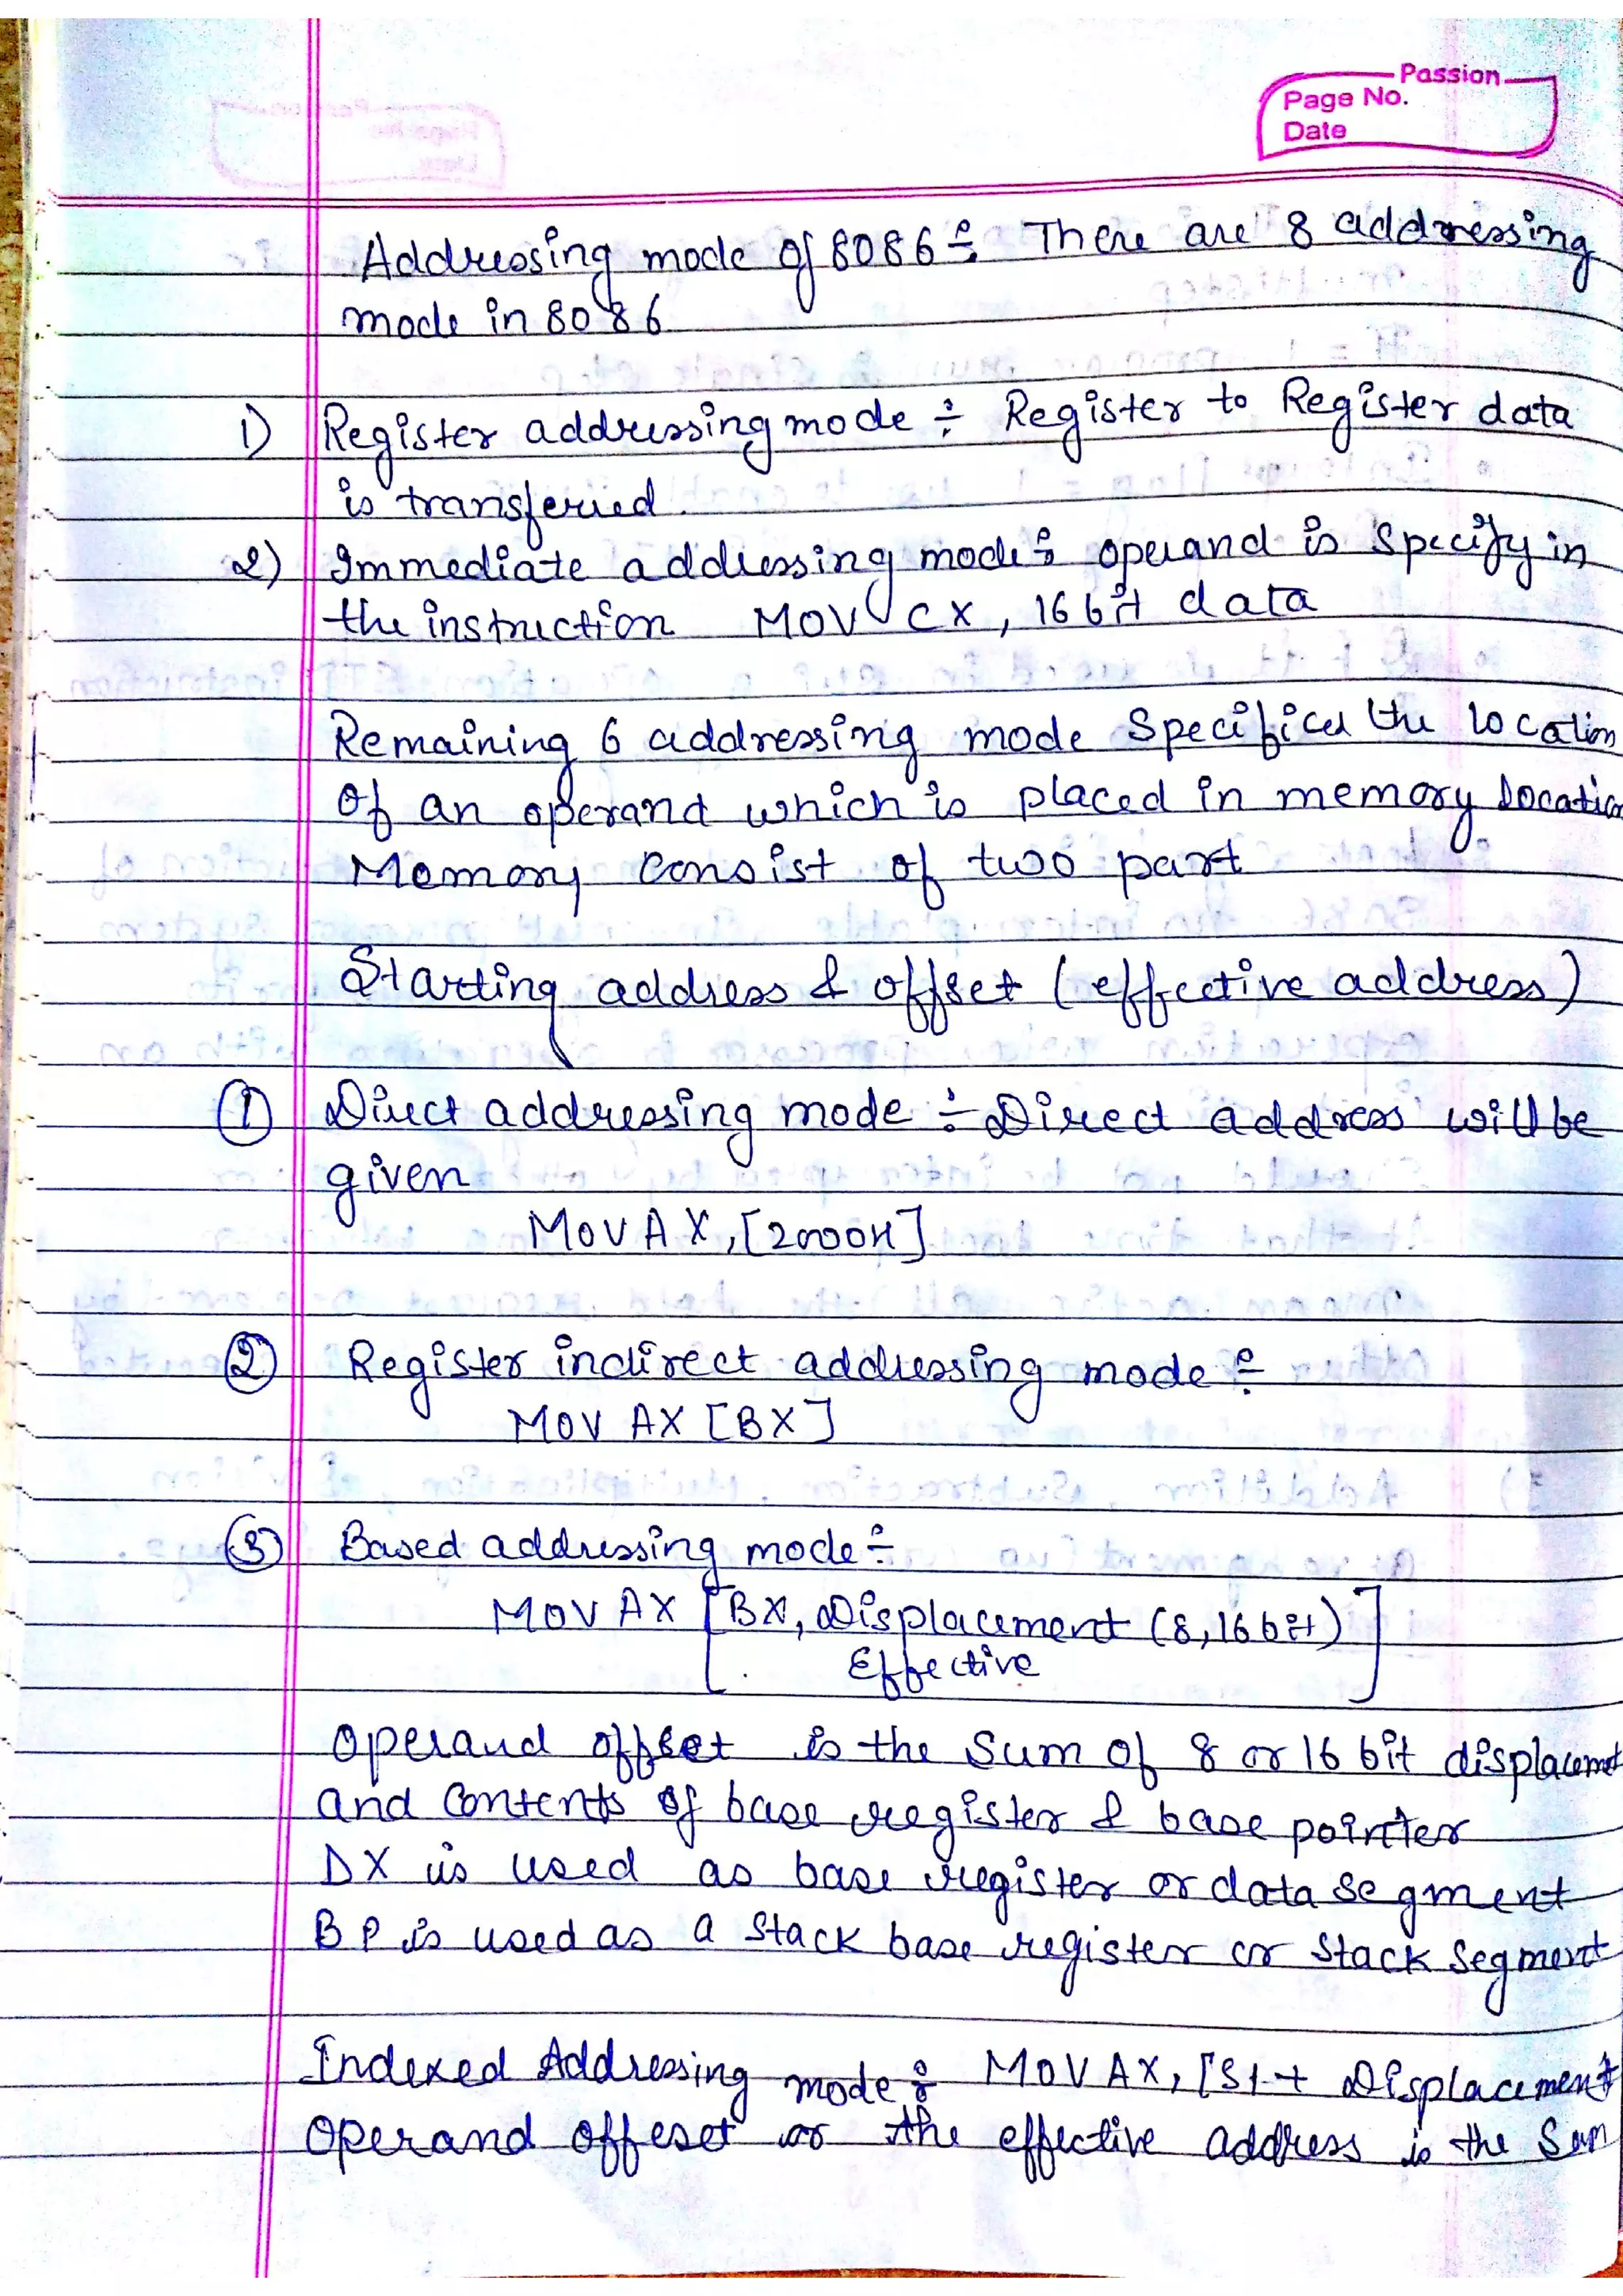 Passion
Page No.
Date
Addressing mode of 8086 ÷ There are 8 addressing
mode in 8086
1) Register addressing mode ÷ Register to Register data
is transferred.
2) Immediate addressing mode ÷ operand is specify in
the instruction MOV CX, 16 bit data
Remaining 6 addressing mode Specifies the location
of an operand which is placed in memory location
Memory consist of two part
Starting address & offset (effective address)
① Direct addressing mode ÷ Direct address will be
given
MOV AX, [2000H]
② Register indirect addressing mode ÷
MOV AX [BX]
③ Based addressing mode ÷
MOV AX [BX, Displacement (8, 16 bit)]
Effective
Operand offset is the sum of 8 or 16 bit displacemet
and contents of base register & base pointer
DX is used as base register or data segment
BP is used as a stack base register or stack segment
Indexed Addressing mode ÷ MOV AX, [SI + Displacement
Operand offeset or the effective address is the Sum